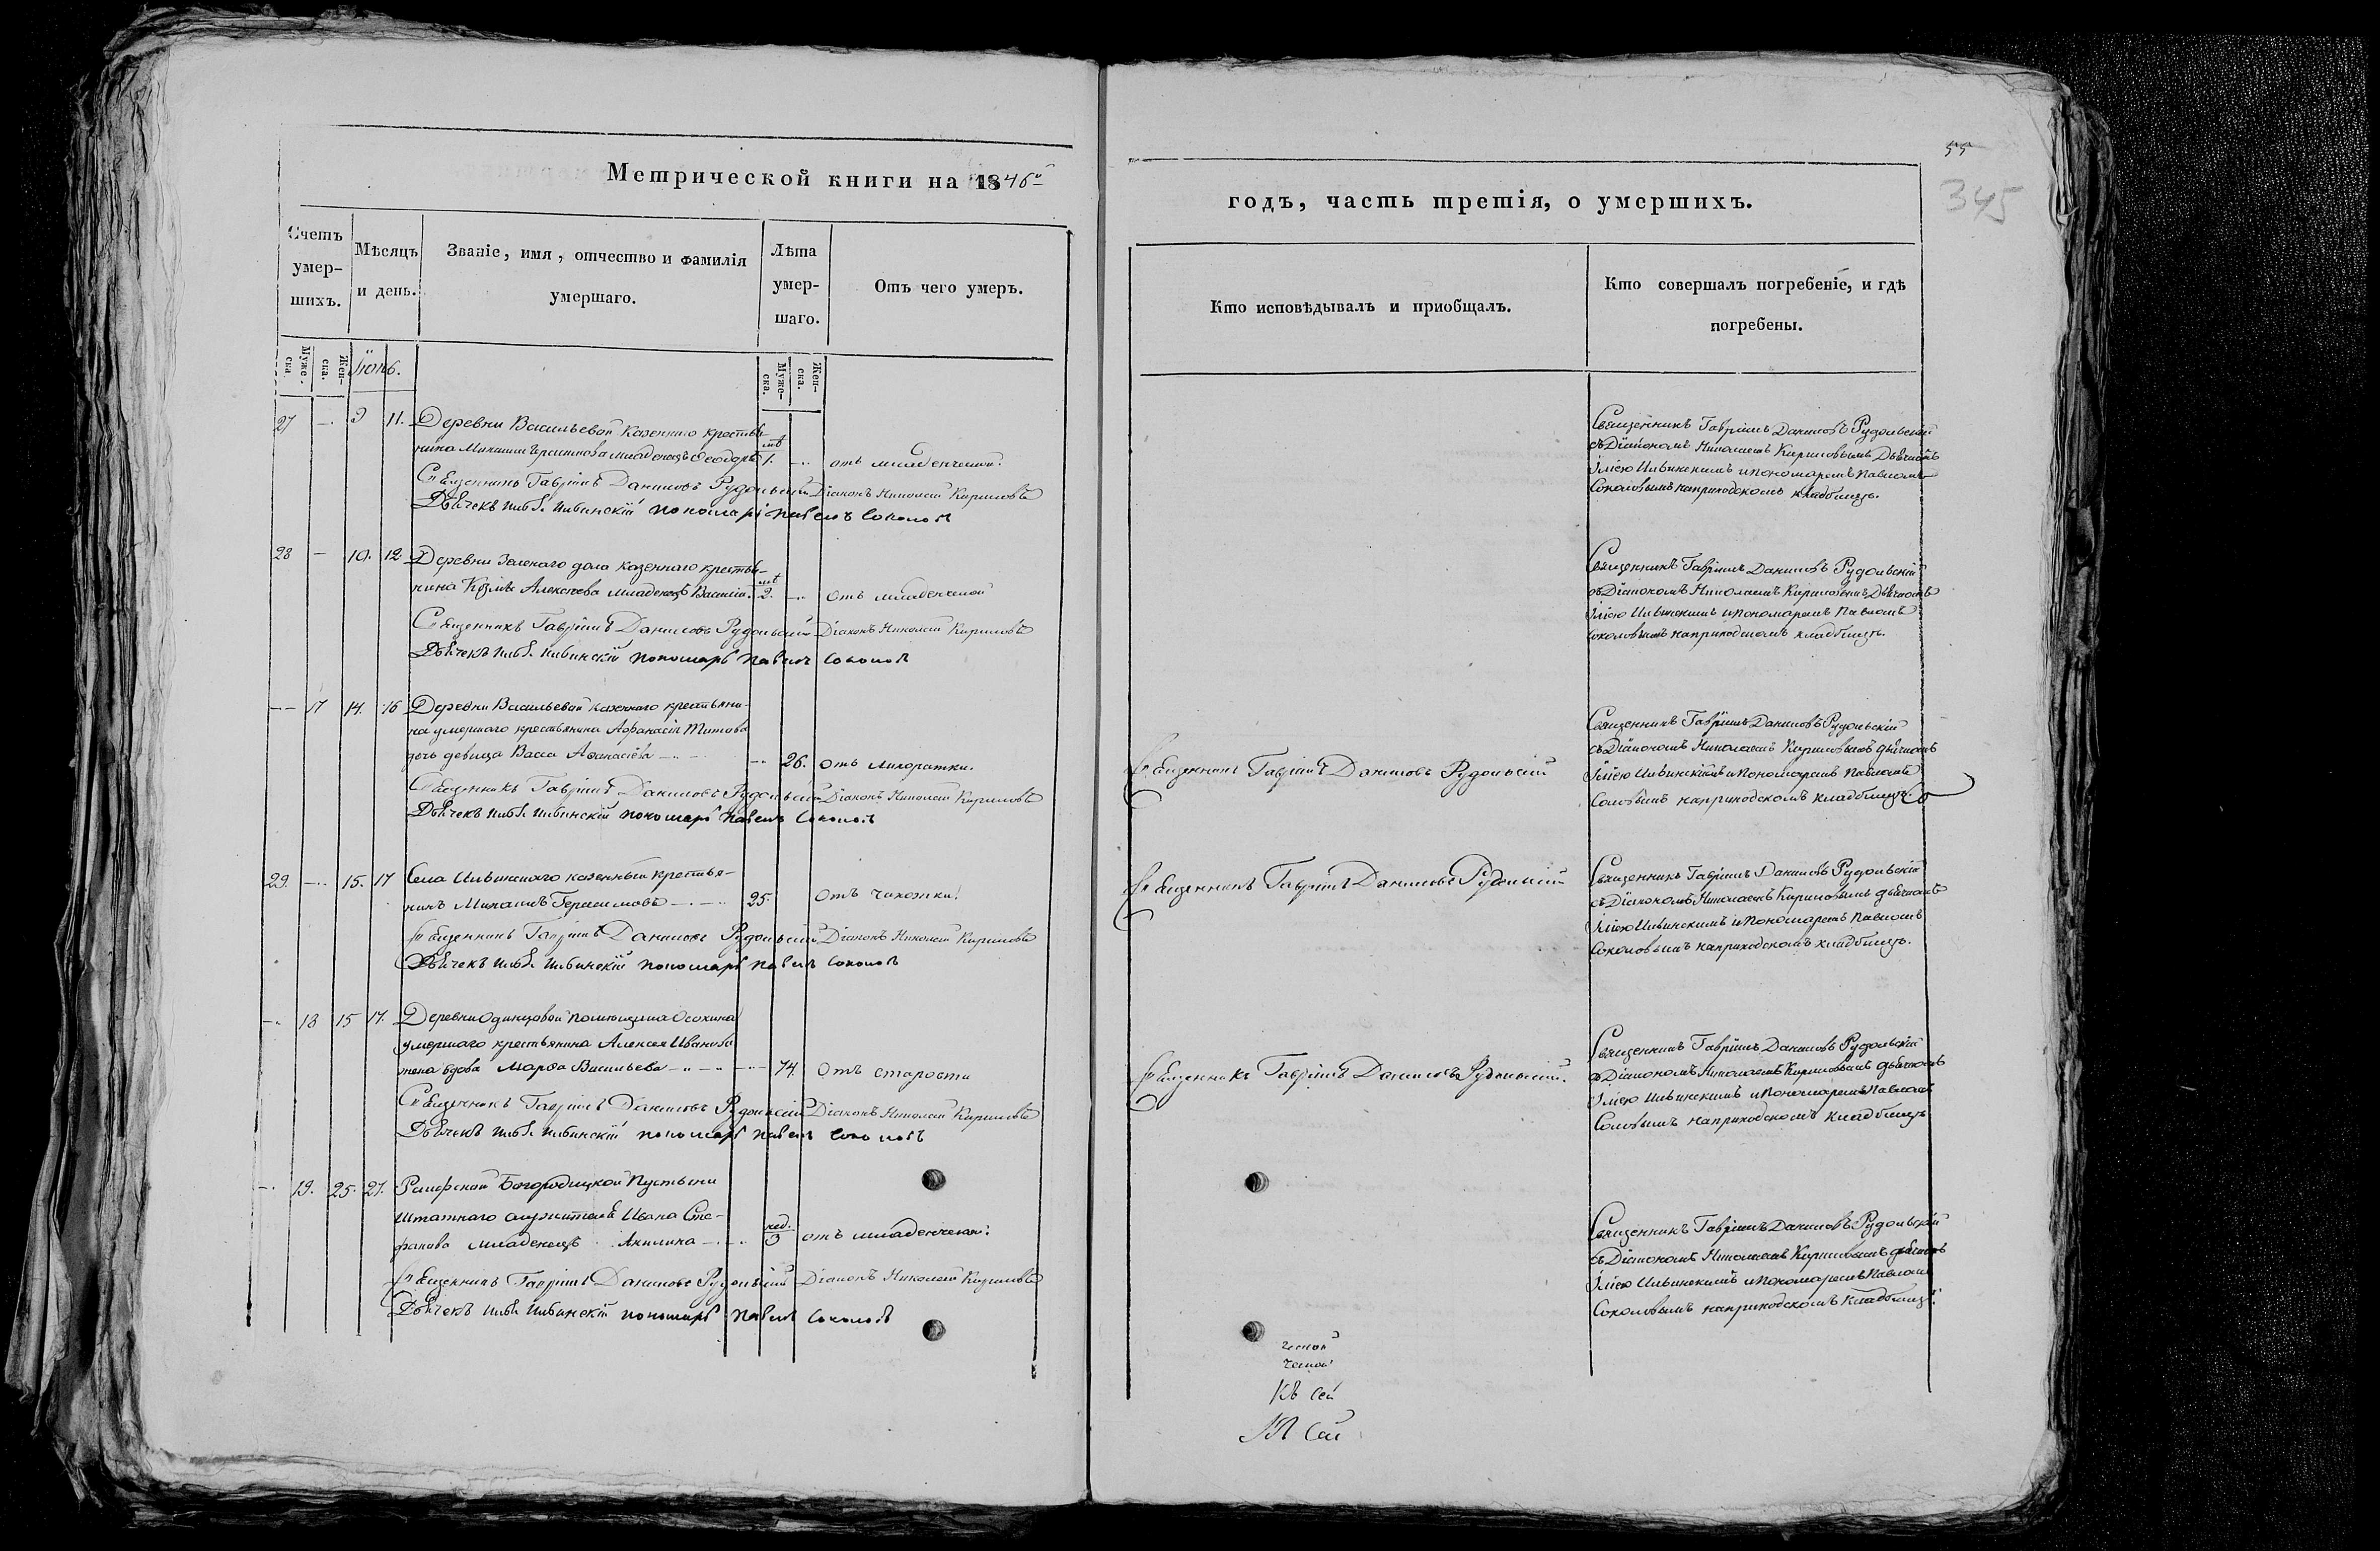 Метрической книги на 1846й
Счетъ умер-шихъ.
Мѣсяцъ и день.
Званіе, имя, отчество и фамилія умершаго.
Лѣта умер-шаго.
Отъ чего умеръ.
Муже-ска.
Жен-ска.
Іюнь.
Муже-ска.
Жен-ска.
27 — 9 11. Деревни Васильевой казеннаго крестья-
нина Михаила младенецъ Ѳеодоръ лѣт 1. — отъ младенческой.
Священникъ Гавріилъ Даниловъ Рудольский Діаконъ Николай Кириловъ
Дьячекъ Илья Ильинскій пономарь Павелъ Соколовъ
28 — 10. 12. Деревни Зеленаго дола казеннаго крестья-
нина Козмы Алексѣева младенецъ Василій. лѣт 2. — отъ младенческой
Священникъ Гавріилъ Даниловъ Рудольский Діаконъ Николай Кириловъ
Дьячекъ Илья Ильинскій пономарь Павелъ Соколовъ
— 17 14. 16 Деревни Васильевой казеннаго крестьяни-
на умершаго крестьянина Афанасія Титова
дочь девица Васса Афанасіева — — 26. отъ лихоратки.
Священникъ Гавріилъ Даниловъ Рудольский Діаконъ Николай Кириловъ
Дьячекъ Илья Ильинскій пономарь Павелъ Соколовъ
29. — 15. 17 Села Ильинскаго казенный крестья-
нинъ Михаилъ Герасимовъ — 25. отъ чахотки.
Священникъ Гавріилъ Даниловъ Рудольский Діаконъ Николай Кириловъ
Дьячекъ Илья Ильинскій пономарь Павелъ Соколовъ
— 18 15 17. Деревни Одинцовой помещика Осокина
умершаго крестьянина Алексея Иванова
жена вдова Марѳа Васильева — — 74. отъ старости
Священникъ Гавріилъ Даниловъ Рудольский Діаконъ Николай Кириловъ
Дьячекъ Илья Ильинскій пономарь Павелъ Соколовъ
— 19. 25. 27. Раифской Богородицкой Пустыни
штатнаго служителя Ивана Сте-
фанова младенецъ Акилина — нед. 3 отъ младенческой.
Священникъ Гавріилъ Даниловъ Рудольский Діаконъ Николай Кириловъ
Дьячекъ Илья Ильинскій пономарь Павелъ Соколовъ
55
345
годъ, часть третія, о умершихъ.
Кто исповѣдывалъ и пріобщалъ.
Кто совершалъ погребеніе, и гдѣ погребены.
Священникъ Гавріилъ Даниловъ Рудольскій
съ Діакономъ Николаемъ Кириловымъ Дьячкомъ
Іліею Ильинскимъ и пономаремъ Павломъ
Соколовымъ на приходскомъ кладбищѣ.
Священникъ Гавріилъ Даниловъ Рудольскій
съ Діакономъ Николаемъ Кириловымъ Дьячкомъ
Іліею Ильинскимъ и пономаремъ Павломъ
Соколовымъ на приходскомъ кладбищѣ.
Священникъ Гавріилъ Даниловъ Рудольский
Священникъ Гавріилъ Даниловъ Рудольскій
съ Діакономъ Николаемъ Кириловымъ дьячкомъ
Іліею Ильинскимъ и Пономаремъ Павломъ
Соловымъ на приходскомъ кладбищѣ.
Священникъ Гавріилъ Даниловъ Рудольский
Священникъ Гавріилъ Даниловъ Рудольскій
съ Діакономъ Николаемъ Кириловымъ дьячкомъ
Іліею Ильинскимъ и Пономаремъ Павломъ
Соколовымъ на приходскомъ кладбищѣ.
Священникъ Гавріилъ Даниловъ Рудольский.
Священникъ Гавріилъ Даниловъ Рудольскій
съ Діакономъ Николаемъ Кириловымъ дьячкомъ
Іліею Ильинскимъ и Пономаремъ Павломъ
Соловымъ на приходскомъ кладбищѣ
Священникъ Гавріилъ Даниловъ Рудольскій
съ Діакономъ Николаемъ Кириловымъ дьячкомъ
Іліею Ильинскимъ и пономаремъ Павломъ
Соколовымъ на приходскомъ кладбищѣ.
Къ Сей
Къ Сей